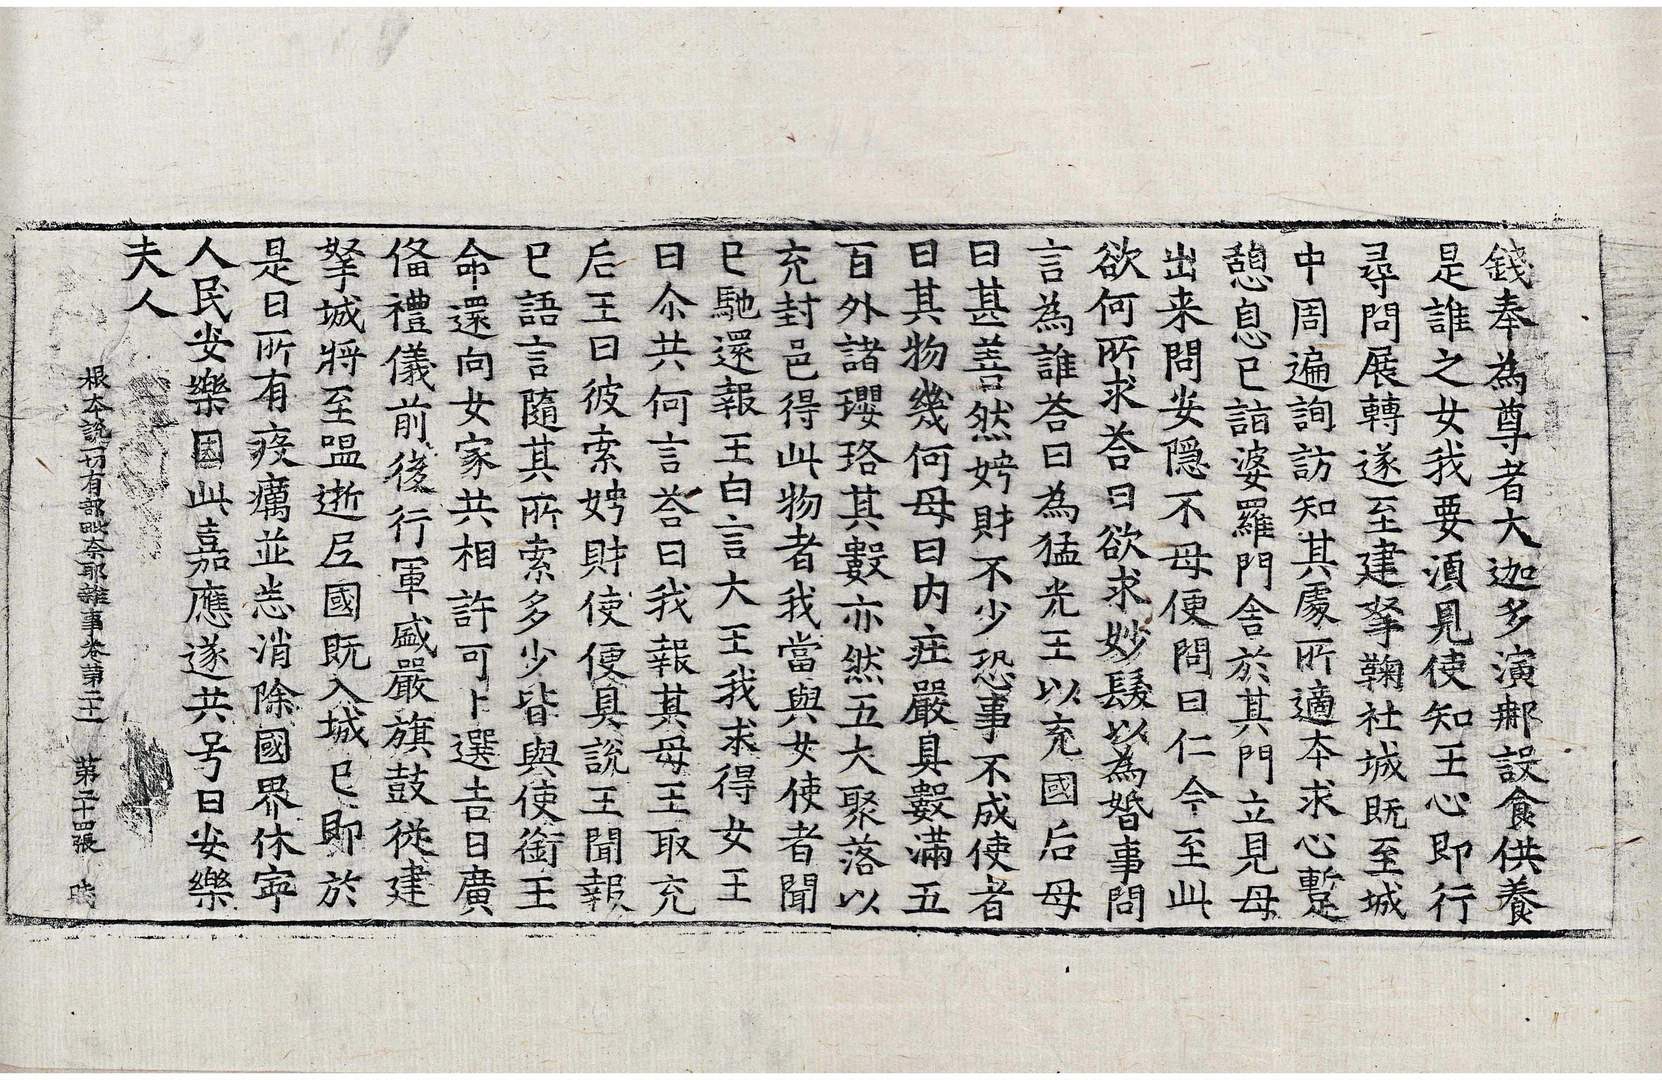 錢奉為尊者大迦多演那設食供養
是誰之女我要湏見使知王心即行
尋問展轉遂至建拏鞠社城既至城
中周遍詢訪知其處所適本求心蹔
憩息已詣婆羅門舍於其門立見母
出来問安隱不母便問曰仁今至此
欲何所求荅曰欲求妙髮以為婚事問
言為誰荅曰為猛光王以充國后母
曰甚善然娉財不少恐事不成使者
曰其物幾何母曰内莊嚴具數滿五
百外諸瓔珞其數亦然五大聚落以
充封邑得此物者我當與女使者聞
已馳還報王白言大王我求得女王
曰尒共何言荅曰我報其母王取充
后王曰彼索娉財使便具說王聞報
已語言隨其所索多少皆與使銜王
命還向女家共相許可卜選吉日廣
俻禮儀前後行軍盛嚴旗鼓從建
拏城將至嗢逝尼國既入城已即於
是日所有疫癘並悉消除國界休寧
人民安樂因此嘉應遂共号曰安樂
夫人
根本說一切有部毗奈耶雜事卷第二十一 第二十四張 時